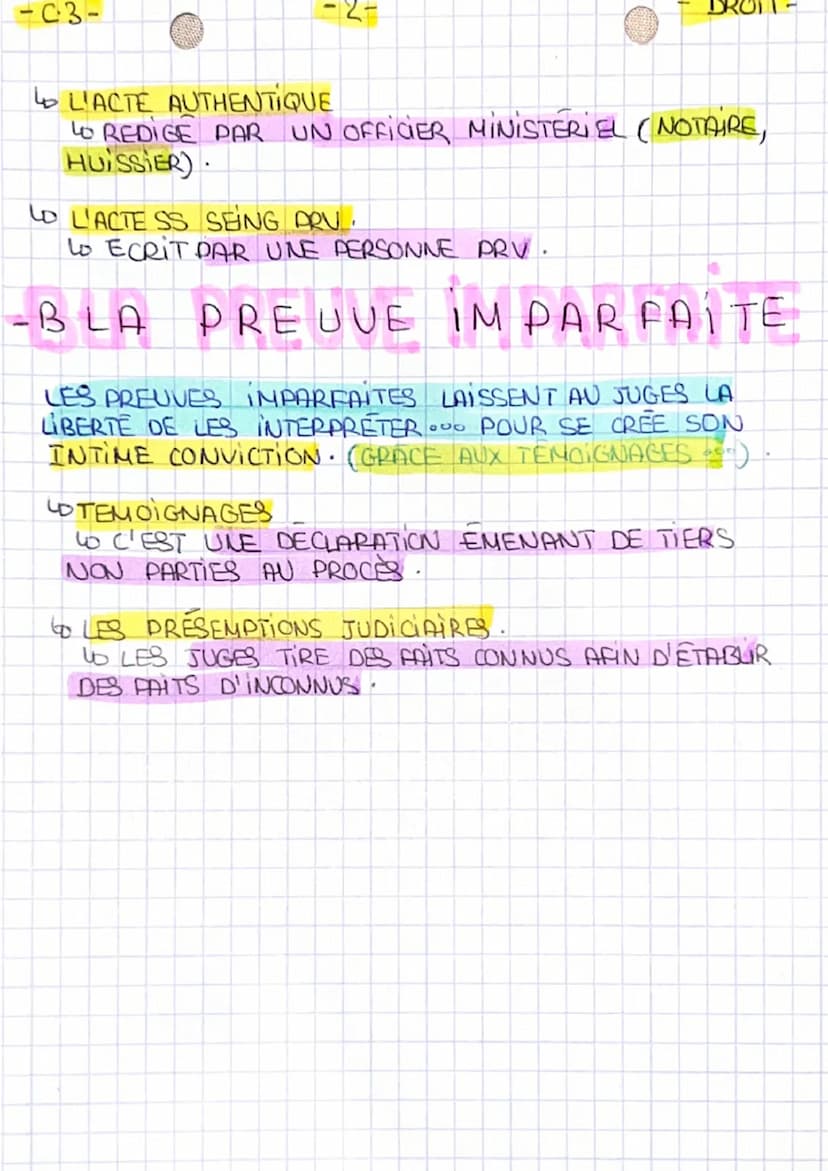 - C.3 - - 2 - - DROIT -
↳ L'ACTE AUTHENTIQUE
↳ REDIGÉ PAR UN OFFICIER MINISTÉRIEL (NOTAIRE,
HUISSIER).
↳ L'ACTE SS SEING PRV.
↳ ECRIT PAR UNE PERSONNE PRV.
- B LA PREUVE IMPARFAITE
LES PREUVES IMPARFAITES LAISSENT AU JUGES LA
LIBERTÉ DE LES INTERPRÉTER ... POUR SE CRÉE SON
INTIME CONVICTION. (GRACE AUX TÉMOIGNAGES ...).
↳ TEMOIGNAGES
↳ C'EST UNE DÉCLARATION ÉMENANT DE TIERS
NON PARTIES AU PROCÈS.
↳ LES PRÉSEMPTIONS JUDICIAIRES.
↳ LES JUGES TIRE DES FAITS CONNUS AFIN D'ÉTABLIR
DES FAITS D'INCONNUS.